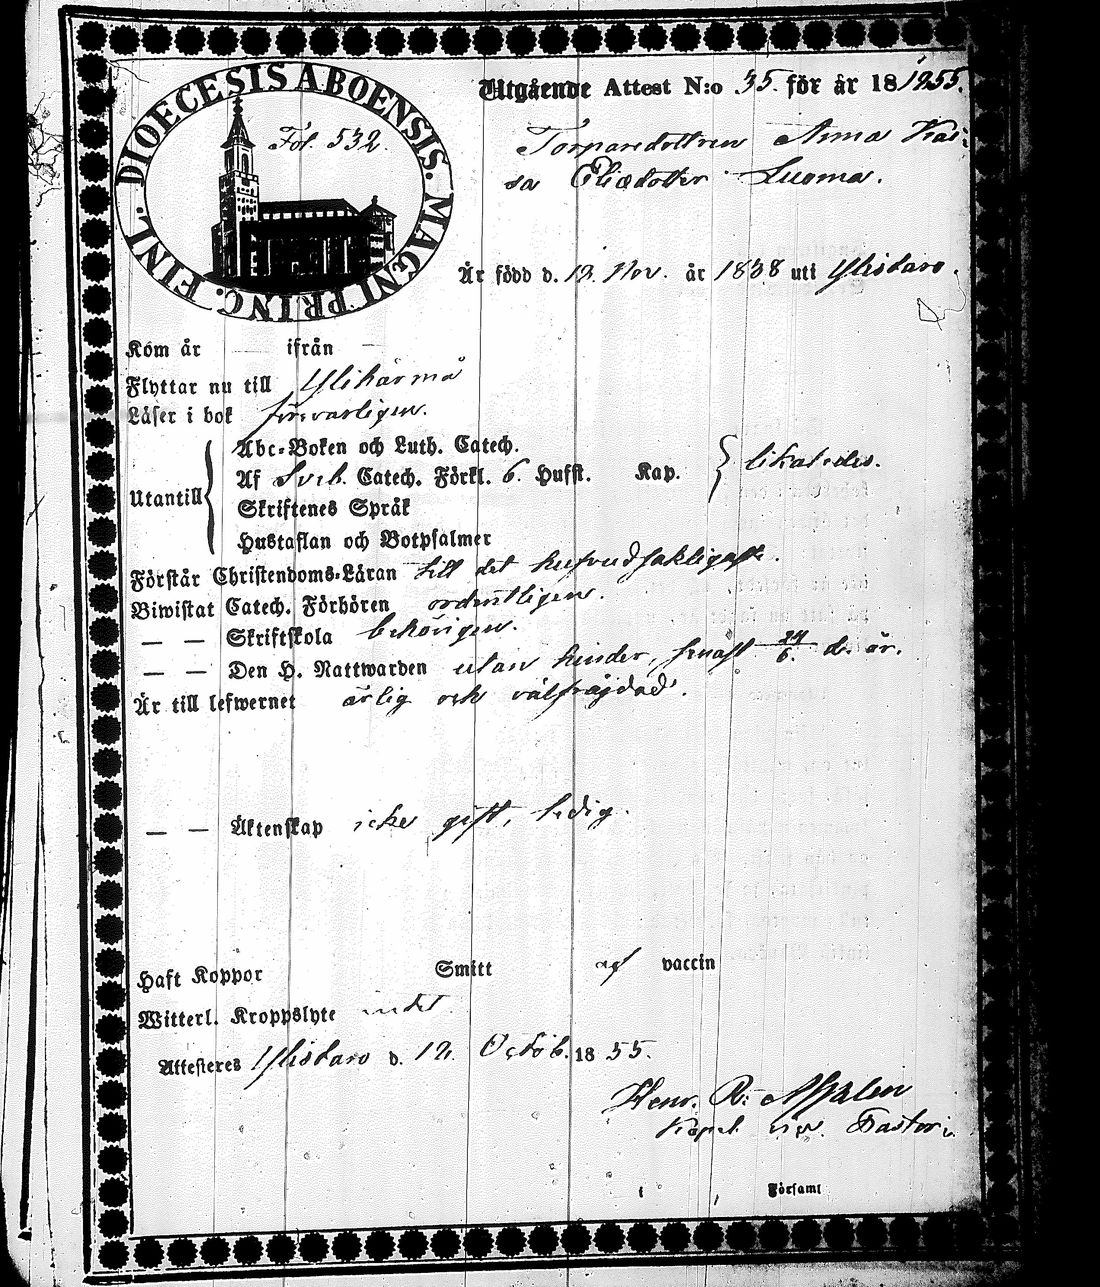 DIOECESIS ABOENSIS. MAGNI PRINC. FINL.
Fol. 532.
Utgående Attest N:o 35. för år 18 1855.
Torparedottren Anna Kai:
sa Eliædotter Luoma.
Är född d. 12. Nov. år 1838 uti Ylistaro.
Kom år — ifrån —
Flyttar nu till Ylihärmä
Läser i bok försvarligen.
Utantill
Abc-Boken och Luth. Catech.
Af Sveb. Catech. Förkl. 6. Hufst. Kap. likaledes.
Skriftenes Språk
Hustaflan och Botpsalmer
Förstår Christendoms-Läran till det hufvudsakligaste.
Biwistat Catech. Förhören ordentligen.
— — Skriftskola behörigen.
— — Den H. Nattwarden utan hinder, senast 24/6. d. år.
Är till lefwernet ärlig och välfräjdad.
— — Äktenskap icke gift, ledig.
Haft Koppor Smitt af vaccin
Witterl. Kroppslyte intet
Attesteres Ylistaro d. 12. Octob. 18 55.
Henr. R:
Kapel. vice Pastor i
i Församl